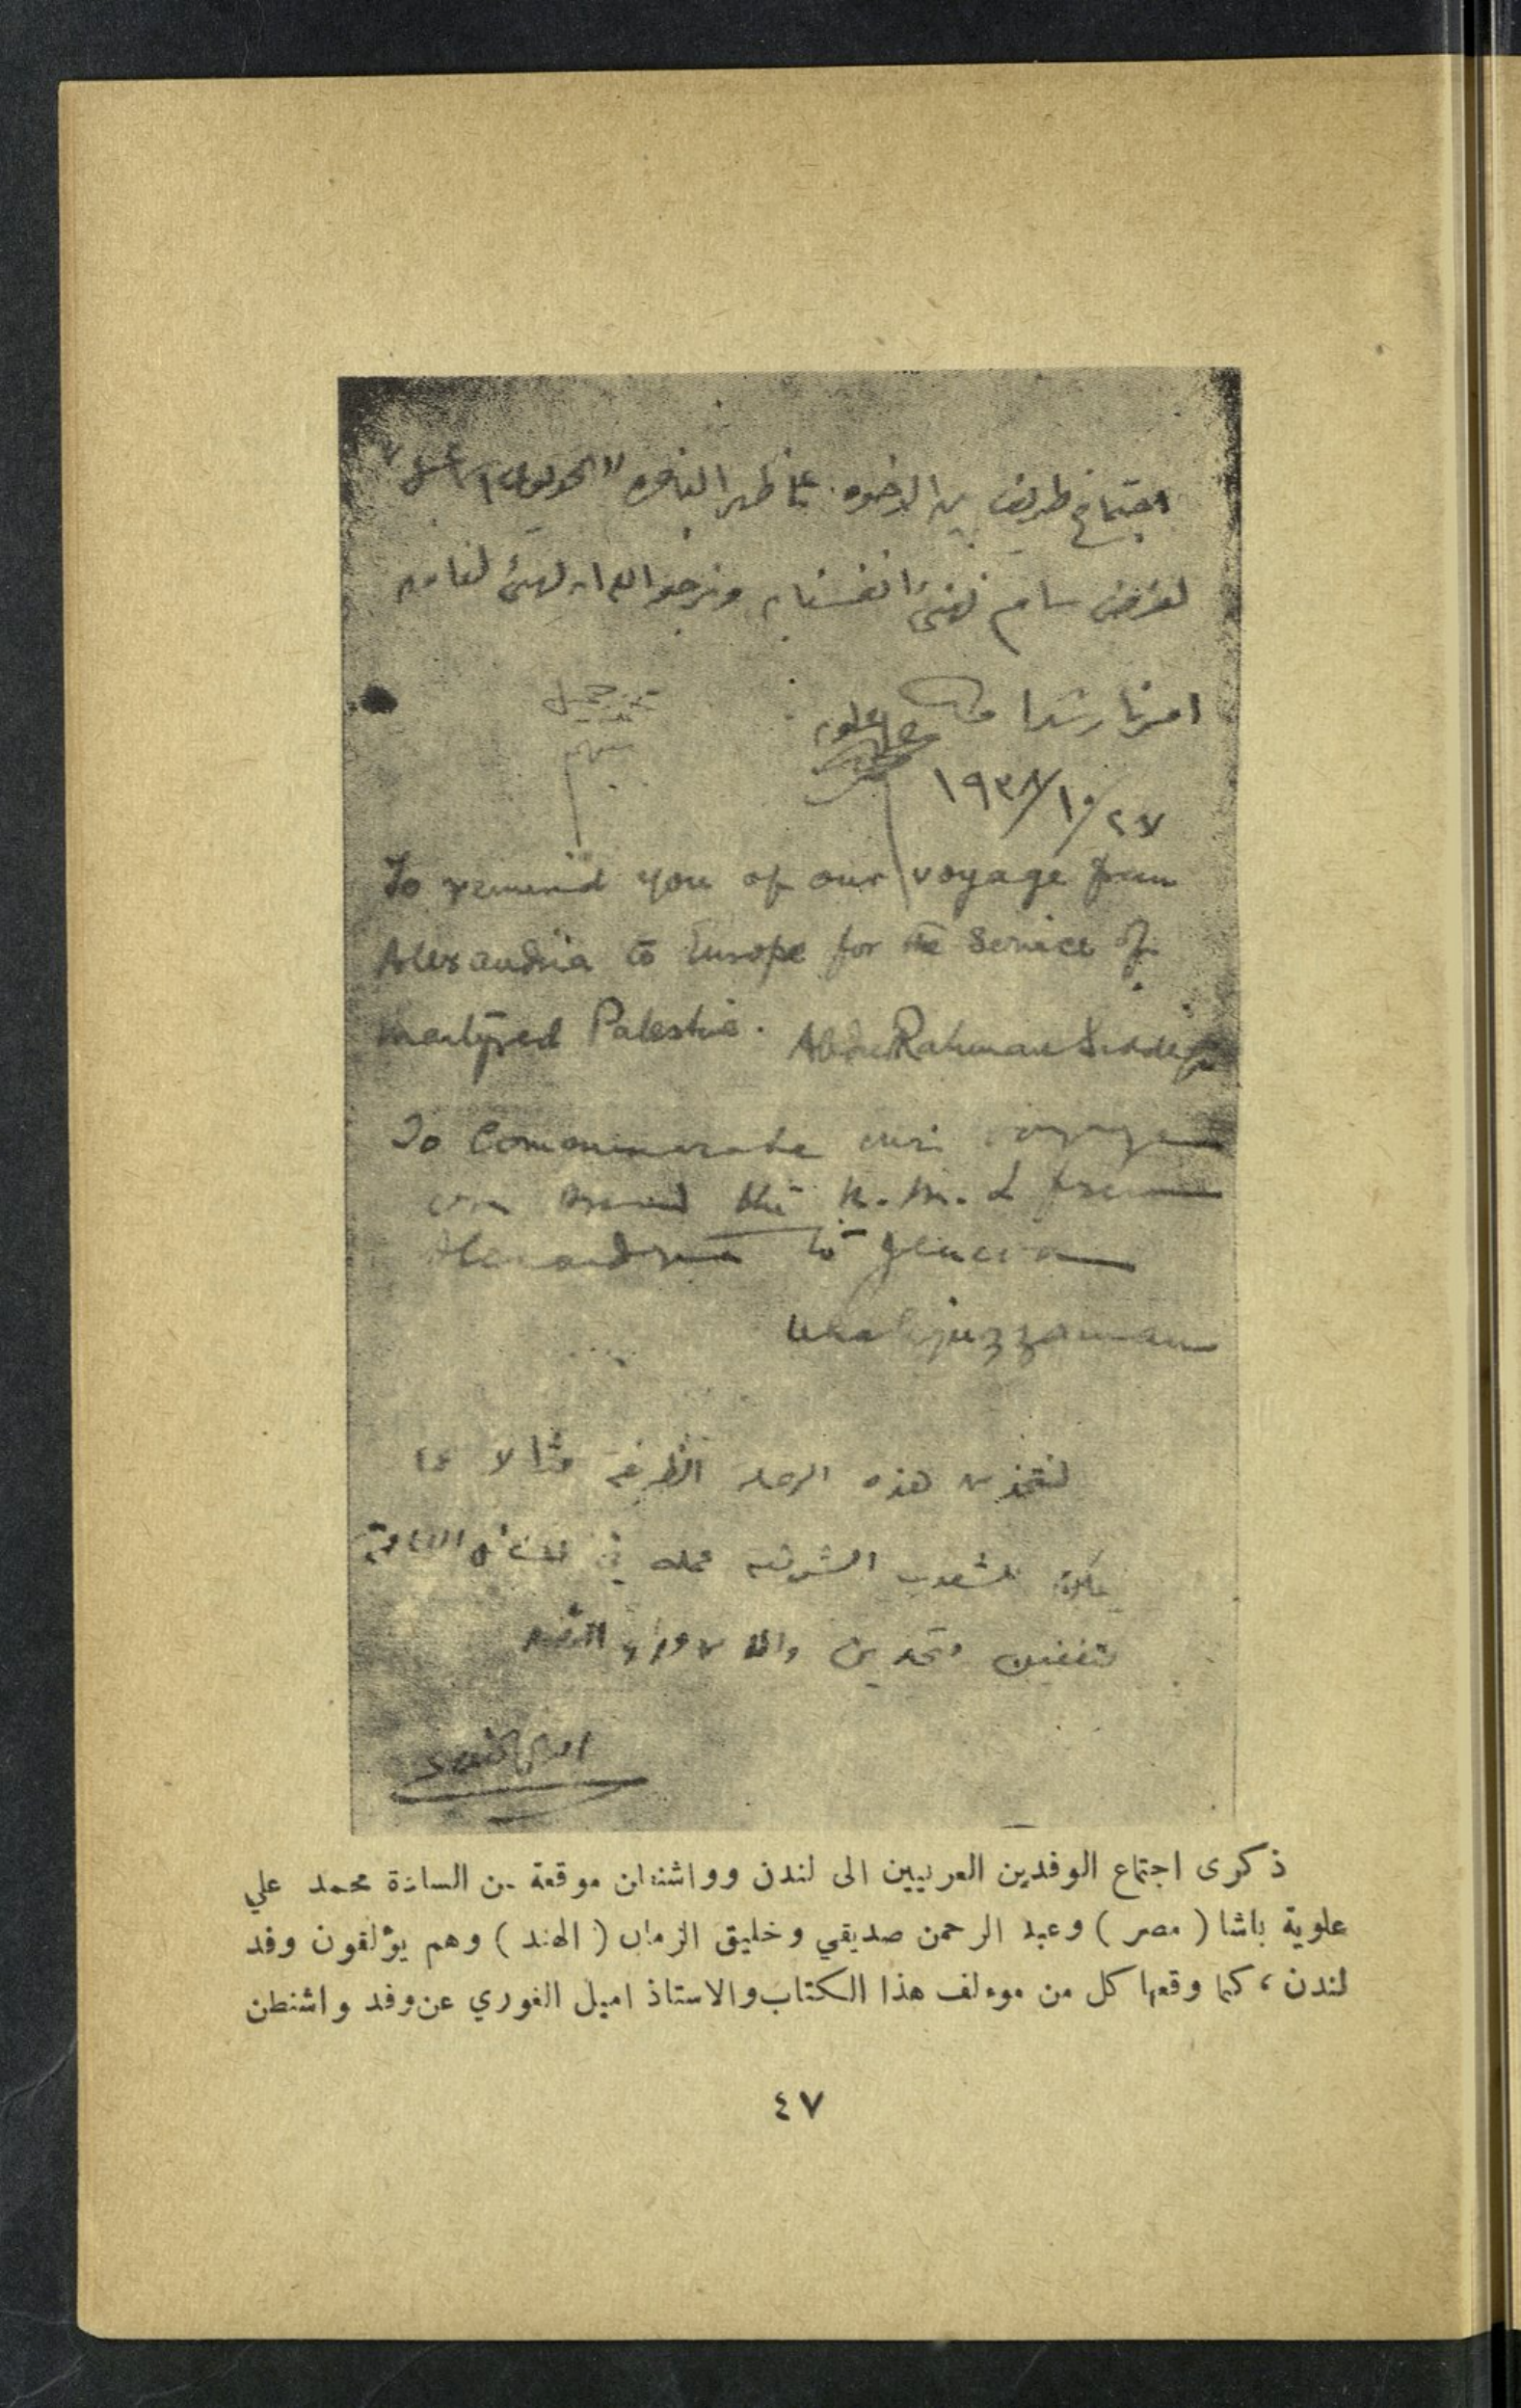 اجتماع ظريف بين الاخوه على ظهر الباخره
لغرض سام نهنئ انفسنا به ونرجو الله ان يهيئ لنا من
امرنا رشدا
٢٧/١٠/١٩٣٨
To remind you of our voyage from
Alexandria to Europe for the Service of
martyred Palestine. AbdurRahman Siddiqi
To Commemorate our voyage
on board the from
Alexandria to Geneva
Khaliquzzaman
لنتخذ من هذه الرحلة الظريفة مثالا
الشرقيه في
متحدين
اميل الغوري
ذكرى اجتماع الوفدين العربيين الى لندن وواشنطن موقعة من السادة محمد علي
علوية باشا ( مصر ) وعبد الرحمن صديقي وخليق الزمان ( الهند ) وهم يؤلفون وفد
لندن ، كما وقعها كل من موءلف هذا الكتاب والاستاذ اميل الغوري عن وفد واشنطن
٤٧